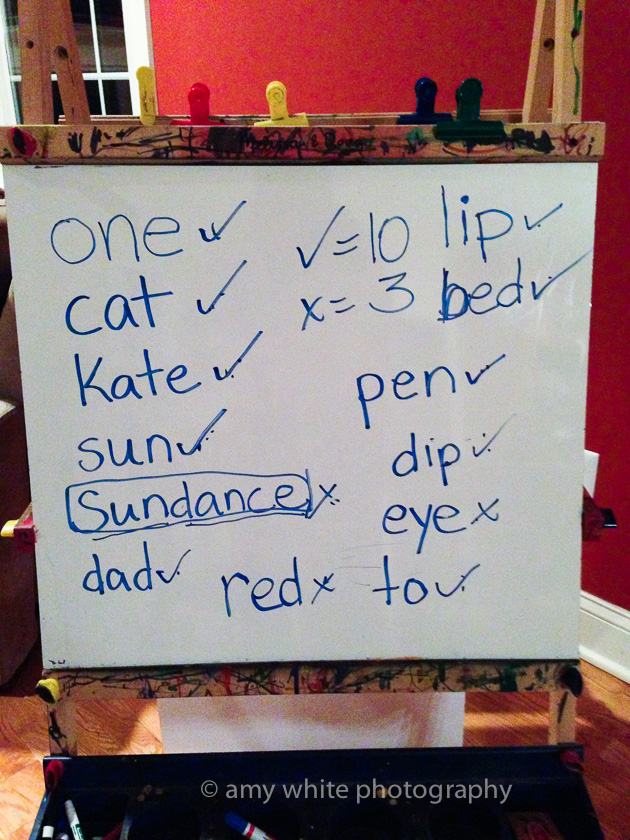 one ✓
cat ✓
Kate ✓
sun ✓
Sundance x
dad ✓
red x
✓=10
x=3
lip ✓
bed ✓
pen ✓
dip ✓
eye x
to ✓
© amy white photography